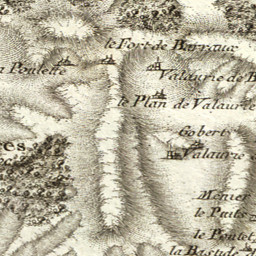 le Fort de Barraux
la Poulette
Valaurie de B
le Plan de Valaurie
Gobert
Valaurie
res
Menier
le Puits
le Poulet
la Bastide